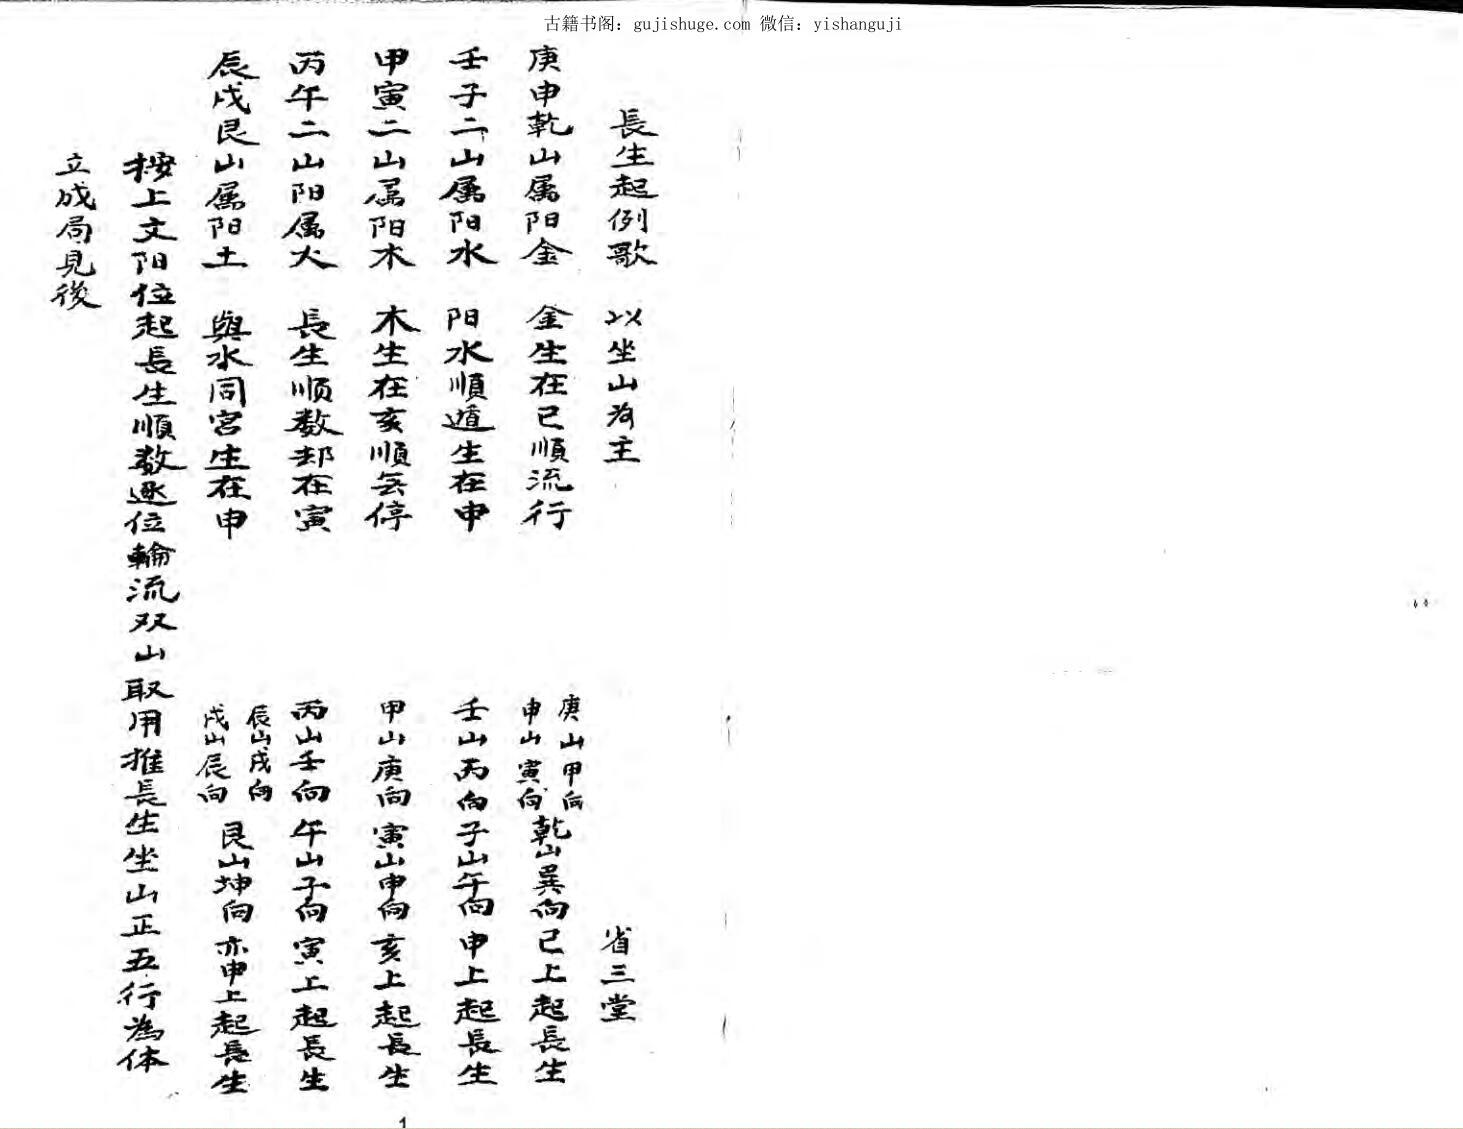 古籍书阁：gujishuge.com 微信：yishanguji
長生起例歌 以坐山为主 省三堂
庚申乾山属阳金 金生在巳順流行 庚山甲向 申山寅向 乾山巽向 巳上起長生
壬子二山属阳水 阳水順遁生在申 壬山丙向 子山午向 申上起長生
甲寅二山属阳木 木生在亥順無停 甲山庚向 寅山申向 亥上起長生
丙午二山阳属火 長生顺数却在寅 丙山壬向 午山子向 寅上起長生
辰戌艮山属阳土 與水同宮生在申 辰山戌向 戌山辰向 艮山坤向 亦申上起長生
按上文阳位起長生順数逐位輪流双山取用推長生坐山正五行為体
立成局見後
1